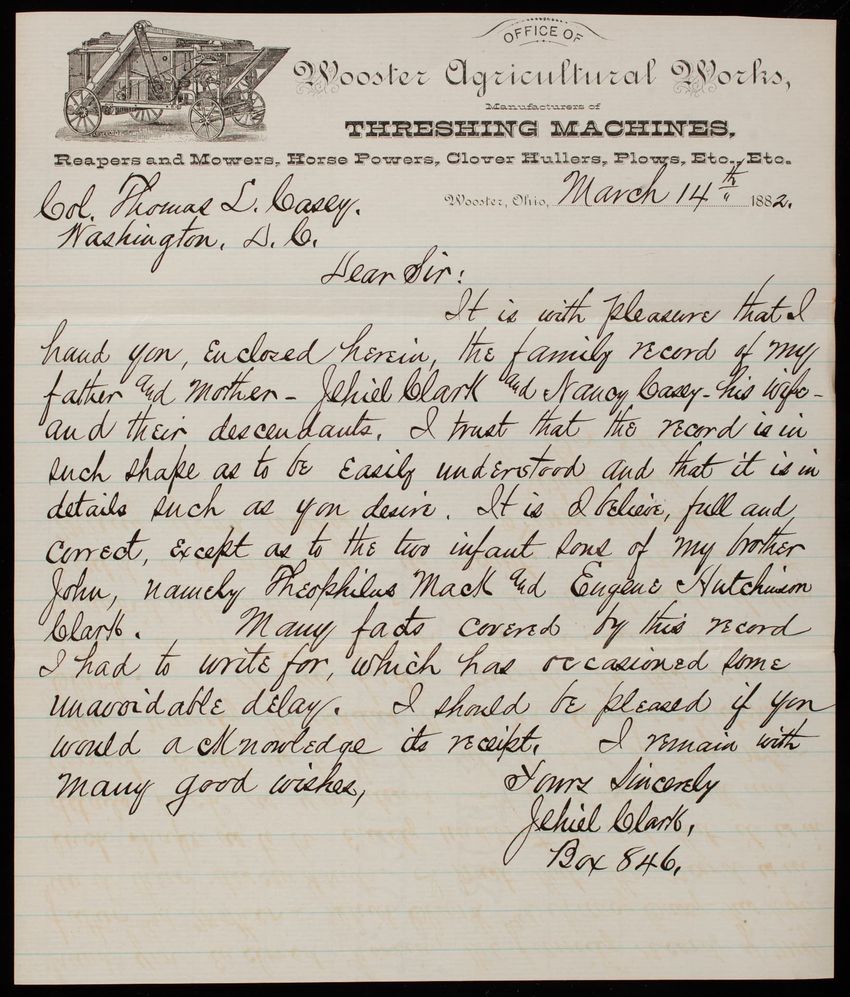 OFFICE OF
Wooster Agricultural Works,
Manufacturers of
THRESHING MACHINES,
Reapers and Mowers, Horse Powers, Clover Hullers, Plows, Etc., Etc.
Wooster, Ohio, March 14th 1882.
Col. Thomas L. Casey.
Washington, D. C.
Dear Sir:
It is with pleasure that I
hand you, enclosed herein, the family record of my
father and mother - Jehiel Clark and Nancy Casey - his wife -
and their descendants. I trust that the record is in
such shape as to be easily understood and that it is in
details such as you desire. It is I believe, full and
correct, except as to the two infant sons of my brother
John, namely Theophilus Mack and Eugene Hutchinson
Clark. Many facts covered by this record
I had to write for, which has occasioned some
unavoidable delay. I should be pleased if you
would acknowledge its receipt. I remain with
many good wishes,
Yours Sincerely
Jehiel Clark,
Box 846.